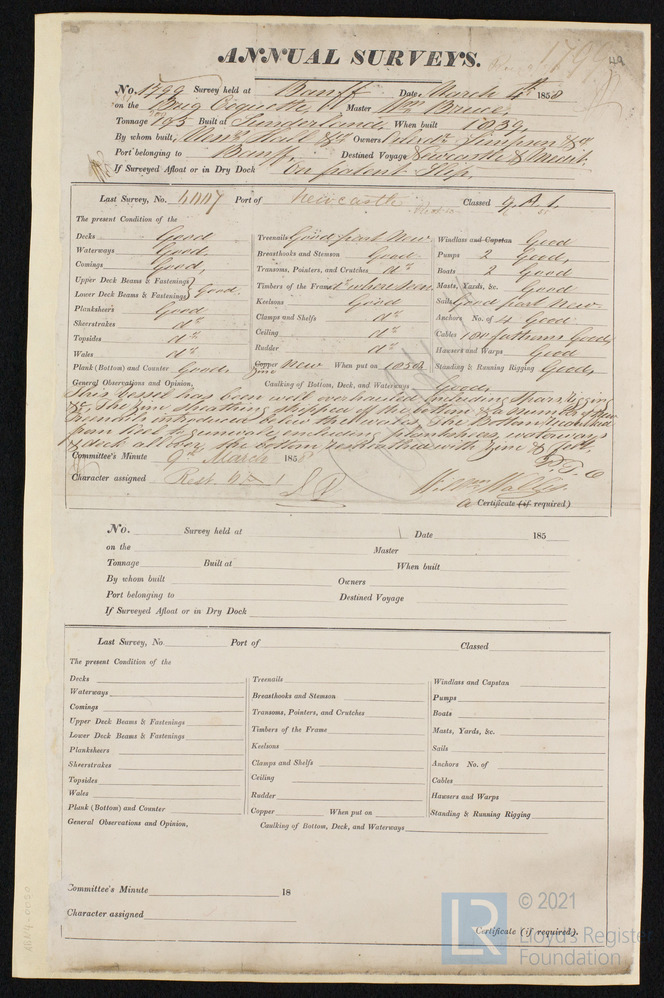 ANNUAL SURVEYS.
1799
49
No. 1799 Survey held at Banff Date, March 4th 1858
on the Brig Coquette, Master Wm Bruce,
Tonnage 195 Built at Sunderland, When built 1839,
By whom built, Owners Simpson & Co
Port belonging to Banff, Destined Voyage Newcastle &
If Surveyed Afloat or in Dry Dock On patent Slip,
Last Survey, No. Port of Newcastle Classed
The present Condition of the
Decks Good
Waterways Good,
Comings Good,
Upper Deck Beams & Fastenings
Lower Deck Beams & Fastenings } Good
Planksheers Good
Sheerstrakes do
Topsides do
Wales do
Plank (Bottom) and Counter Good,
Treenails Good part New
Breasthooks and Stemson Good
Transoms, Pointers, and Crutches do
Timbers of the Frame do where seen
Keelsons Good
Clamps and Shelfs do
Ceiling do
Rudder do
Copper Zinc New When put on 1858,
Windlass and Capstan Good
Pumps 2 Good,
Boats 2 Good
Masts, Yards, &c. Good
Sails Good part New
Anchors No. of 4 Good
Cables fathoms Good,
Hawsers and Warps Good
Standing & Running Rigging Good,
General Observations and Opinion, Caulking of Bottom, Deck, and Waterways Good,
This vessel has been well overhauled including Spars, rigging
&c, The Zinc Sheathing stripped off the bottom & a number of New
Treenails introduced below the wales, The Bottom
from keel to gunwale including planksheers, waterways
& deck all over, the bottom resheathed with Zinc & felt,
P.T.O
Committee's Minute 9th March 1858
Character assigned
Certificate (if required)
No. Survey held at Date 185
on the Master
Tonnage Built at When built
By whom built Owners
Port belonging to Destined Voyage
If Surveyed Afloat or in Dry Dock
Last Survey, No Port of Classed
The present Condition of the
Decks
Waterways
Comings
Upper Deck Beams & Fastenings
Lower Deck Beams & Fastenings
Planksheers
Sheerstrakes
Topsides
Wales
Plank (Bottom) and Counter
Treenails
Breasthooks and Stemson
Transoms, Pointers, and Crutches
Timbers of the Frame
Keelsons
Clamps and Shelfs
Ceiling
Rudder
Copper When put on
Windlass and Capstan
Pumps
Boats
Masts, Yards, &c.
Sails
Anchors No. of
Cables
Hawsers and Warps
Standing & Running Rigging
General Observations and Opinion, Caulking of Bottom, Deck, and Waterways
Committee's Minute 18
Character assigned
Certificate (if required).
LR
© 2021
Lloyd's Register
Foundation